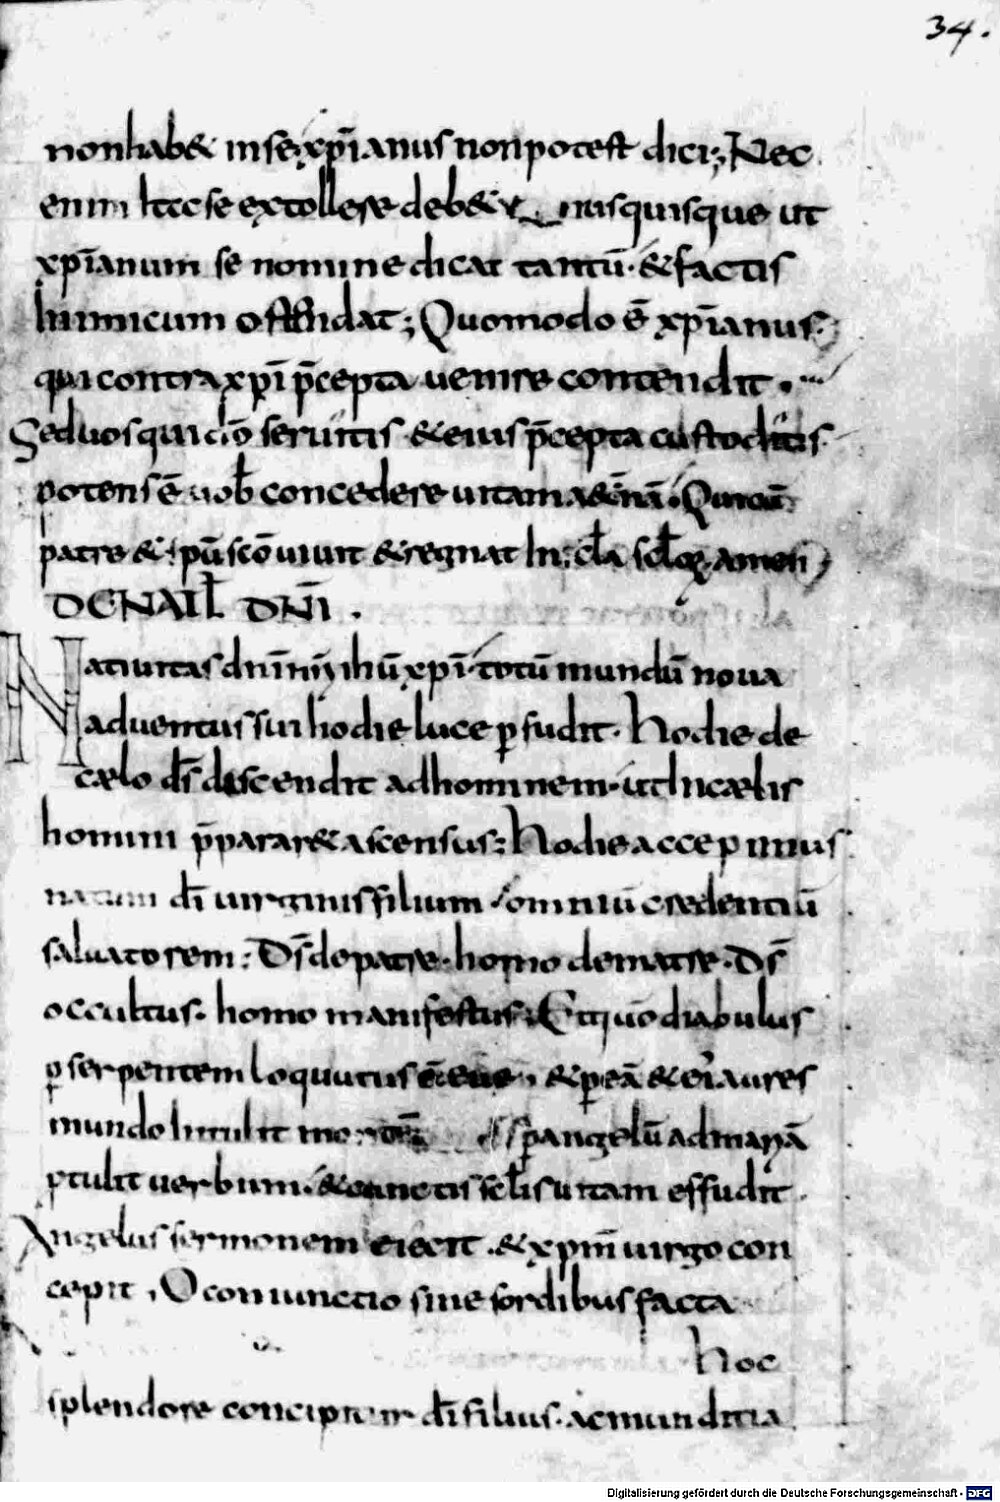 34.
nonhab& inse xp̄ianus nonpotest dici; Nec
enim hoc se extollere deb& unusquisque ut
xp̄ianum se nomine dicat tantū · & factis
inimicum ostendat; Quomodo ē xp̄ianus
qui contra xp̄i p̄cepta uenire contendit ·
Sed uos qui dō seruitis & eius p̄cepta custoditis
potens ē uob̄ concedere uitam aet̄nā · Qui cū
patre & sp̄u scō uiuit & regnat In scl̄a scl̄oꝝ amen
DENATL̄ DN̄I .
Natiuitas dn̄i nr̄i ihū xp̄i · totū mundū noua
aduentus sui hodie luce ꝑfudit · Hodie de
caelo d̄s descendit adhominem · ut In caelis
hominı p̄parar& ascensus : Hodie accepimus
natum dī uirginis filium omniū credentiū
saluatorem : D̄s depatre · homo dematre · D̄s
occultus · homo manifestus · Et quō diabulus
ꝑ serpentem loquutus ē euae, & ꝑ eā & ei aures
mundo Intulit mortē ꝑangelū admariā
ꝑtulit uerbum · & cunctis scl̄is uitam effudit ·
Angelus sermonem eiecit · & xp̄m uirgo con
cepit , O coniunctio sine sordibus facta
Hoc
splendore concipitur dī filius · ac munditia
Digitalisierung gefördert durch die Deutsche Forschungsgemeinschaft - DFG